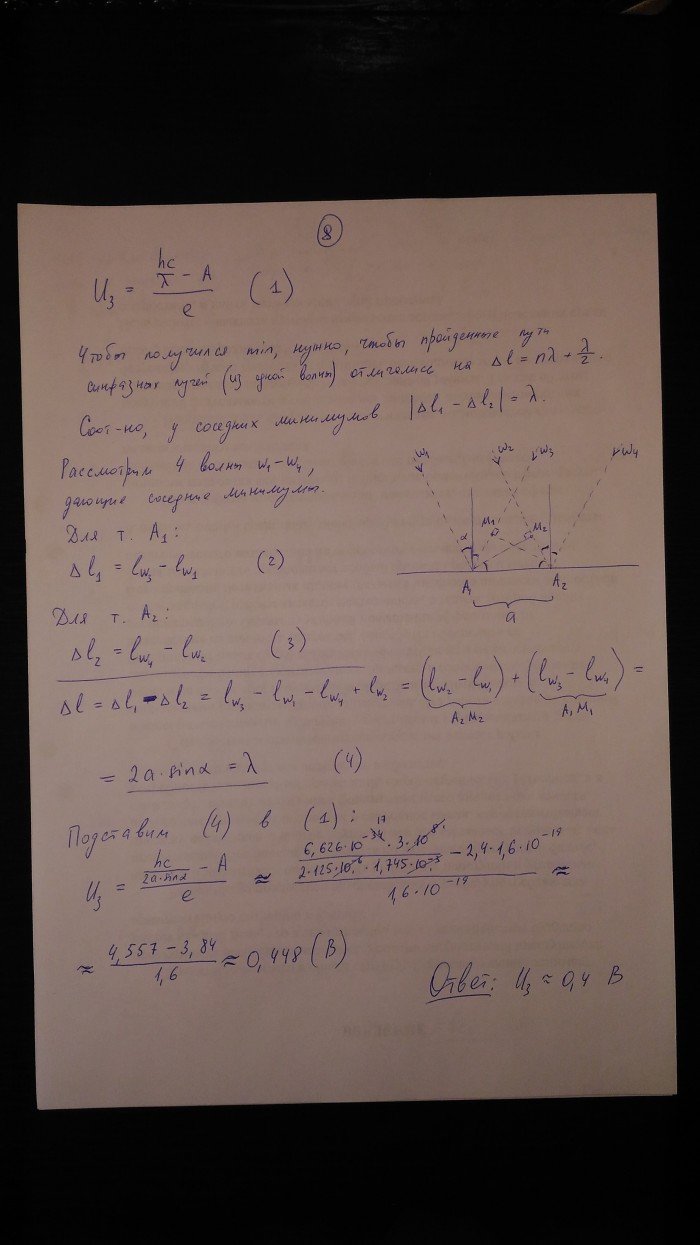 8
U₃ = (hc/λ − A)/e (1)
Чтобы получился min, нужно, чтобы пройденные пути
синфазных лучей (из одной волны) отличались на Δl = nλ + λ/2.
Соот-но, у соседних минимумов |Δl₁ − Δl₂| = λ.
Рассмотрим 4 волны w₁−w₄,
дающие соседние минимумы.
w₁ w₂ w₃ w₄
α M₁ M₂
A₁ A₂
a
Для т. A₁:
Δl₁ = l_w₃ − l_w₁ (2)
Для т. A₂:
Δl₂ = l_w₄ − l_w₂ (3)
Δl = Δl₁ − Δl₂ = l_w₃ − l_w₁ − l_w₄ + l_w₂ = (l_w₂ − l_w₁) + (l_w₃ − l_w₄) =
A₂M₂ A₁M₁
= 2a·sinα = λ (4)
Подставим (4) в (1):
17
U₃ = (hc/(2a·sinα) − A)/e ≈ ((6,626·10⁻³⁴·3·10⁸)/(2·125·10⁻⁶·1,745·10⁻³) − 2,4·1,6·10⁻¹⁹)/(1,6·10⁻¹⁹) ≈
≈ (4,557 − 3,84)/1,6 ≈ 0,448 (В)
Ответ: U₃ ≈ 0,4 В